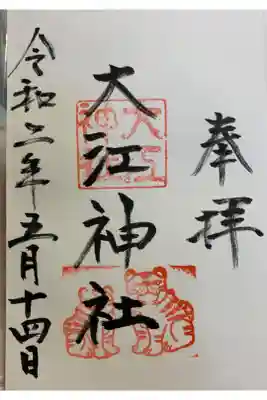 奉拝
大江神社
令和二年五月十四日